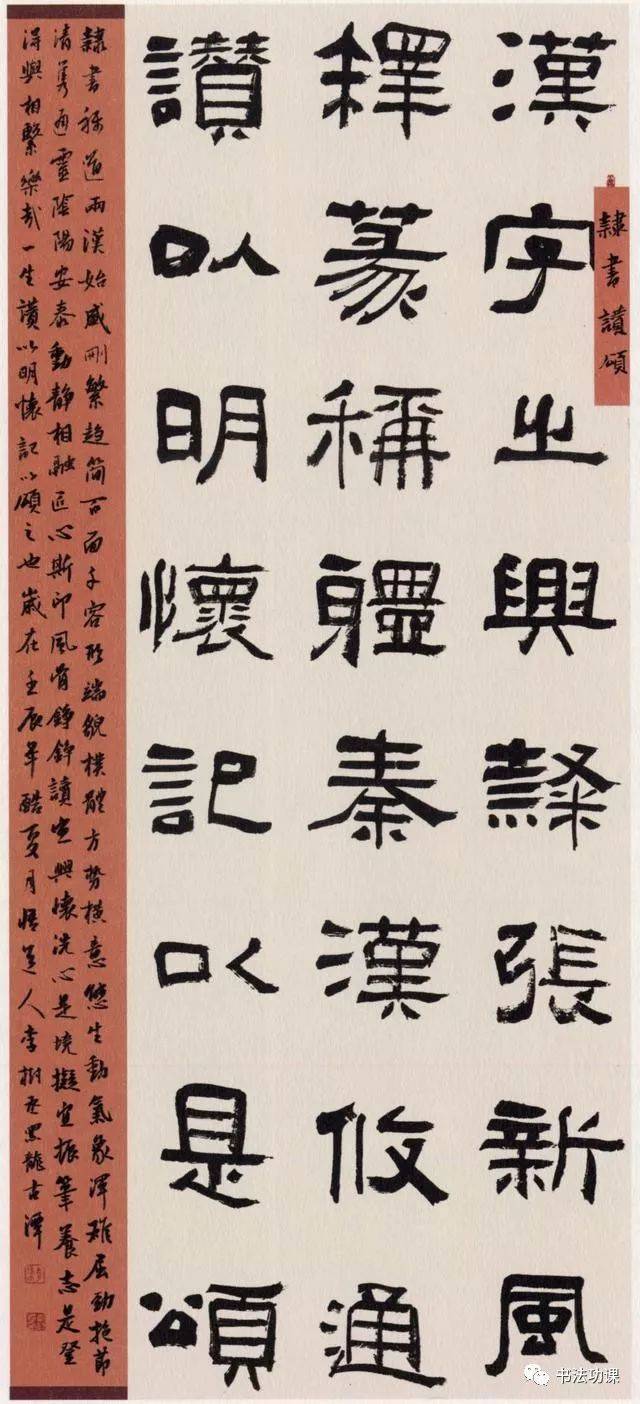 隸書讚頌
漢字之興隸張新風
釋篆稱疆秦漢攸通
讚以明懷記以是頌
隸書稱道兩漢始盛刪繁趋简百面千容形端貌樸體方勢橫意悠生動氣象渾雄屈勁抱節
清雋通靈陰陽安泰動靜相融匠心斯印風骨錚錚讀興懷洗心是境擬宜振筆養志是登
得興相繫樂哉一生讚以明懷記以頌之也歲在壬辰年酷夏月悟道人李樹黑龍古潭
书法功课